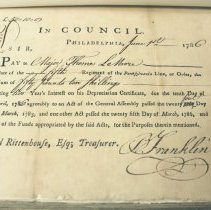 IN COUNCIL.
PHILADELPHIA, June 1786
SIR,
PAY to Major Thomas
Regiment of the Pennsylvania Line, or Order, the
Sum of Fifty pounds ten shillings
being Year's Interest on his Depreciation Certificate, due the tenth Day of
agreeable to an Act of the General Assembly passed the
March, 1785, and one other Act passed the Day of March, 1786, and
of the Funds appropriated by the said Acts, for the Purposes therein mentioned.
Rittenhouse, Esq; Treasurer. B Franklin